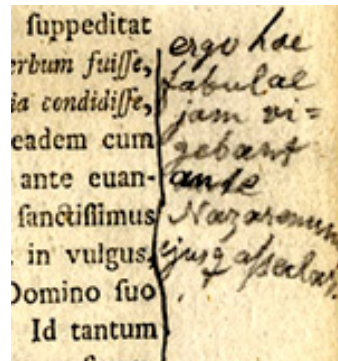 suppeditat
erbum fuiſſe,
ia condidiſſe,
eadem cum
ante euan-
ſanctiſſimus
in vulgus,
Domino ſuo
Id tantum
ergo hae
fabulae
jam vi=
gebant
ante
Nazarenum
ejusq